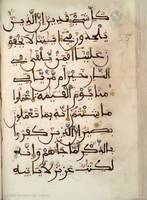 كل شىء قدير ان الذين
يلحدون فى ءايتنا لا يخفون
علينا افمن يلقى فى
النار خير ام من ياتى ءا
منا يوم القيمة اعملوا
ما شئتم انه بما تعملون
بصير ان الذين كفروا
بالذكر لما جاءهم وانه
لكتب عزيز لا ياتيه